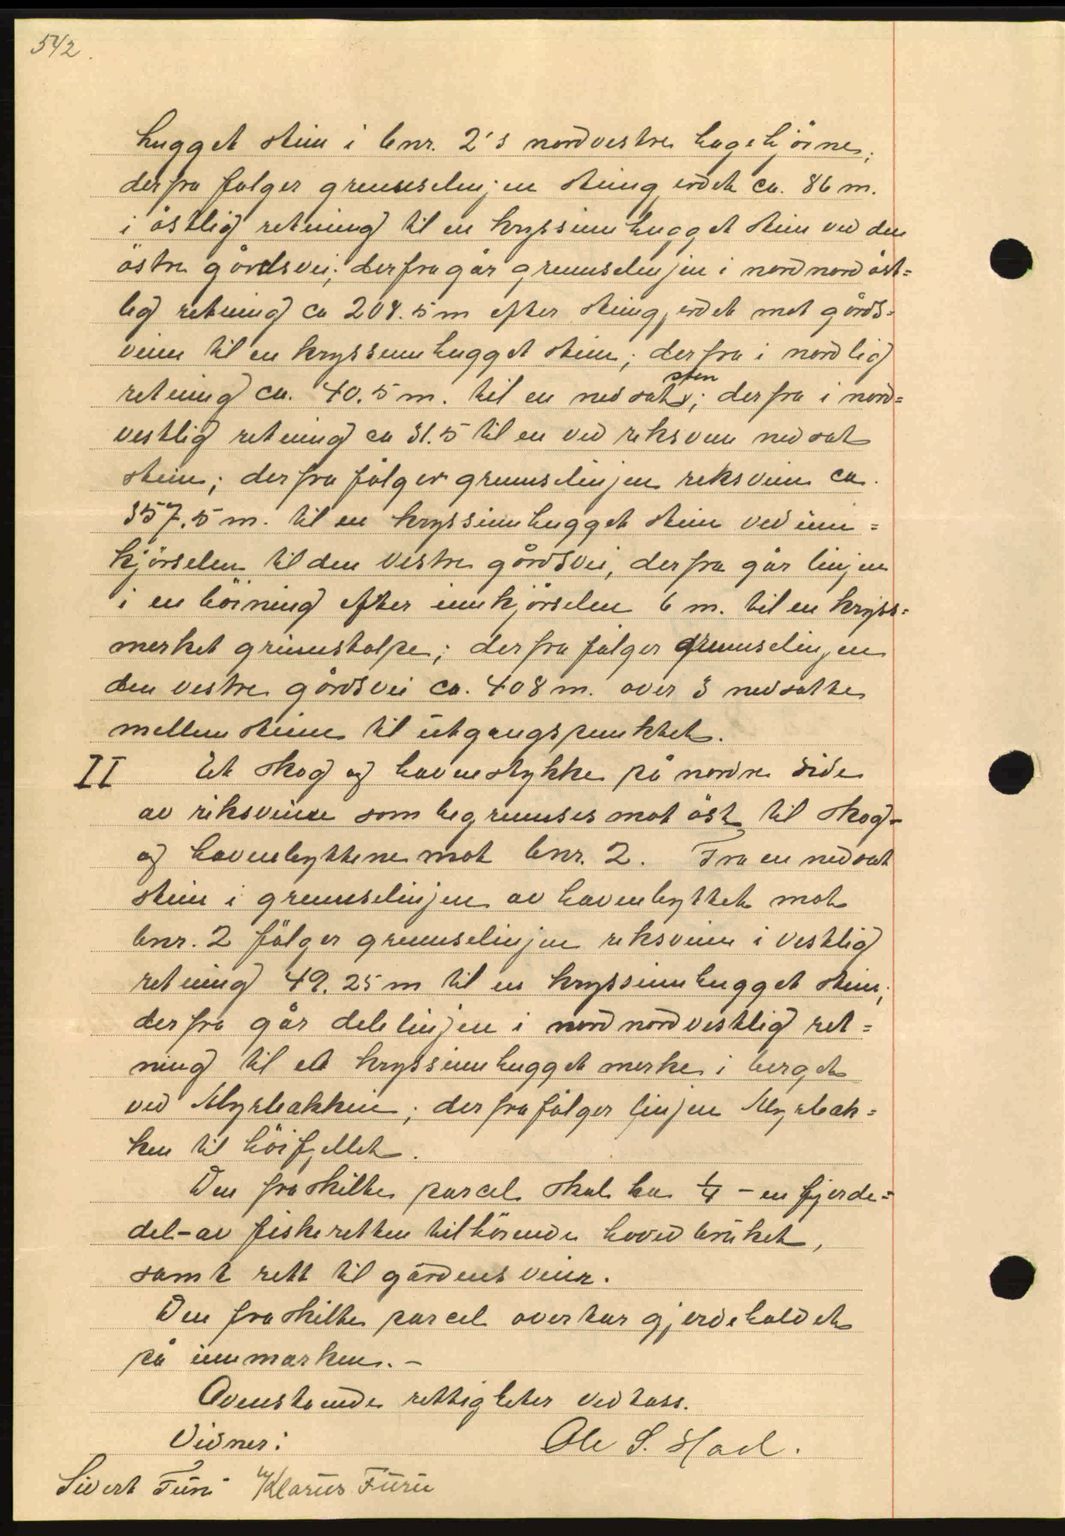 542.
hugget stein i bnr. 2's nordvestre hagehjörne;
derfra følger grenselinjen steingjerdet ca. 86 m.
i östlig retning til en kryssinnhugget stein ved den
östre gårdsvei; derfra går grenselinjen i nordnordöst=
lig retning ca 208.5 m efter steingjerdet mot gårds-
veien til en kryssinnhugget stein; derfra i nordlig
retning ca. 40.5 m. til en nedsatt sten; derfra i nord=
vestlig retning ca 31.5 til en ved riksveien nedsatt
stein; derfra fölger grenselinjen riksveien ca.
357.5 m. til en kryssinnhugget stein ved inn=
kjörselen til den vestre gårdsvei, derfra går linjen
i en böining efter innkjörselen 6 m. til en kryss=
merket grinnstolpe; derfra fölger grenselinjen
den vestre gårdsvei ca. 408 m. over 3 nedsatte
mellemsteine til utgangspunktet.
II Et skog og havnestykke på nordre side
av riksveien som begrenses mot öst til skog-
og havnebyttene mot bnr. 2. Fra en nedsatt
stein i grenselinjen av havnebyttet mot
bnr. 2 fölger grenselinjen riksveien i vestlig
retning 49.25 m til en kryssinnhugget stein;
derfra går delelinjen i nordnordvestlig ret=
ning til et kryssinnhugget merke i berget
ved Myrbakken; derfra fölger linjen Myrbak=
ken til höifjellet.
Den fraskilte parcel skal ha 1/4 - en fjerde=
del - av fiskeretten tilhörende hovedbruket,
samt rett til gårdens veier.
Den fraskilte parcel overtar gjerdeholdet
på innmarken. -
Ovenstående rettigheter vedtass.
Vidner: Ole S. Hoel.
Sivert Furu Klarus Furu